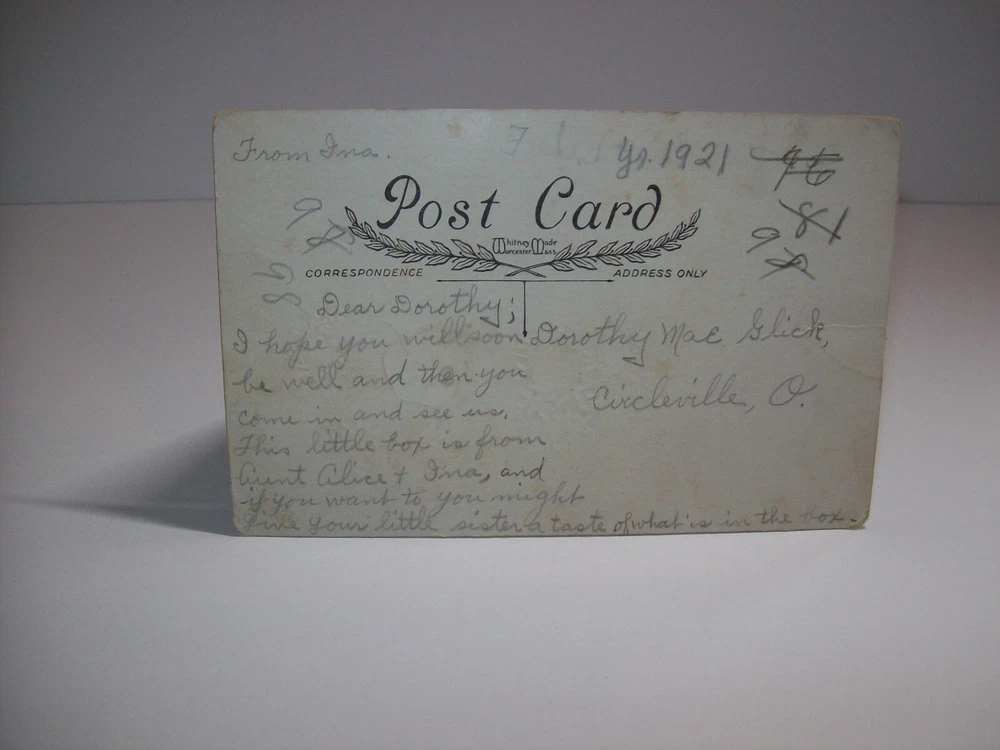 From Ina.
Yr. 1921
96
84
98
98
98
Post Card
Whitney Made
Worcester Mass.
CORRESPONDENCE
ADDRESS ONLY
Dear Dorothy;
I hope you will soon
be well and then you
come in and see us.
This little box is from
Aunt Alice + Ina, and
if you want to you might
Give your little sister a taste of what is in the box.
Dorothy Mae Glick,
Circleville, O.